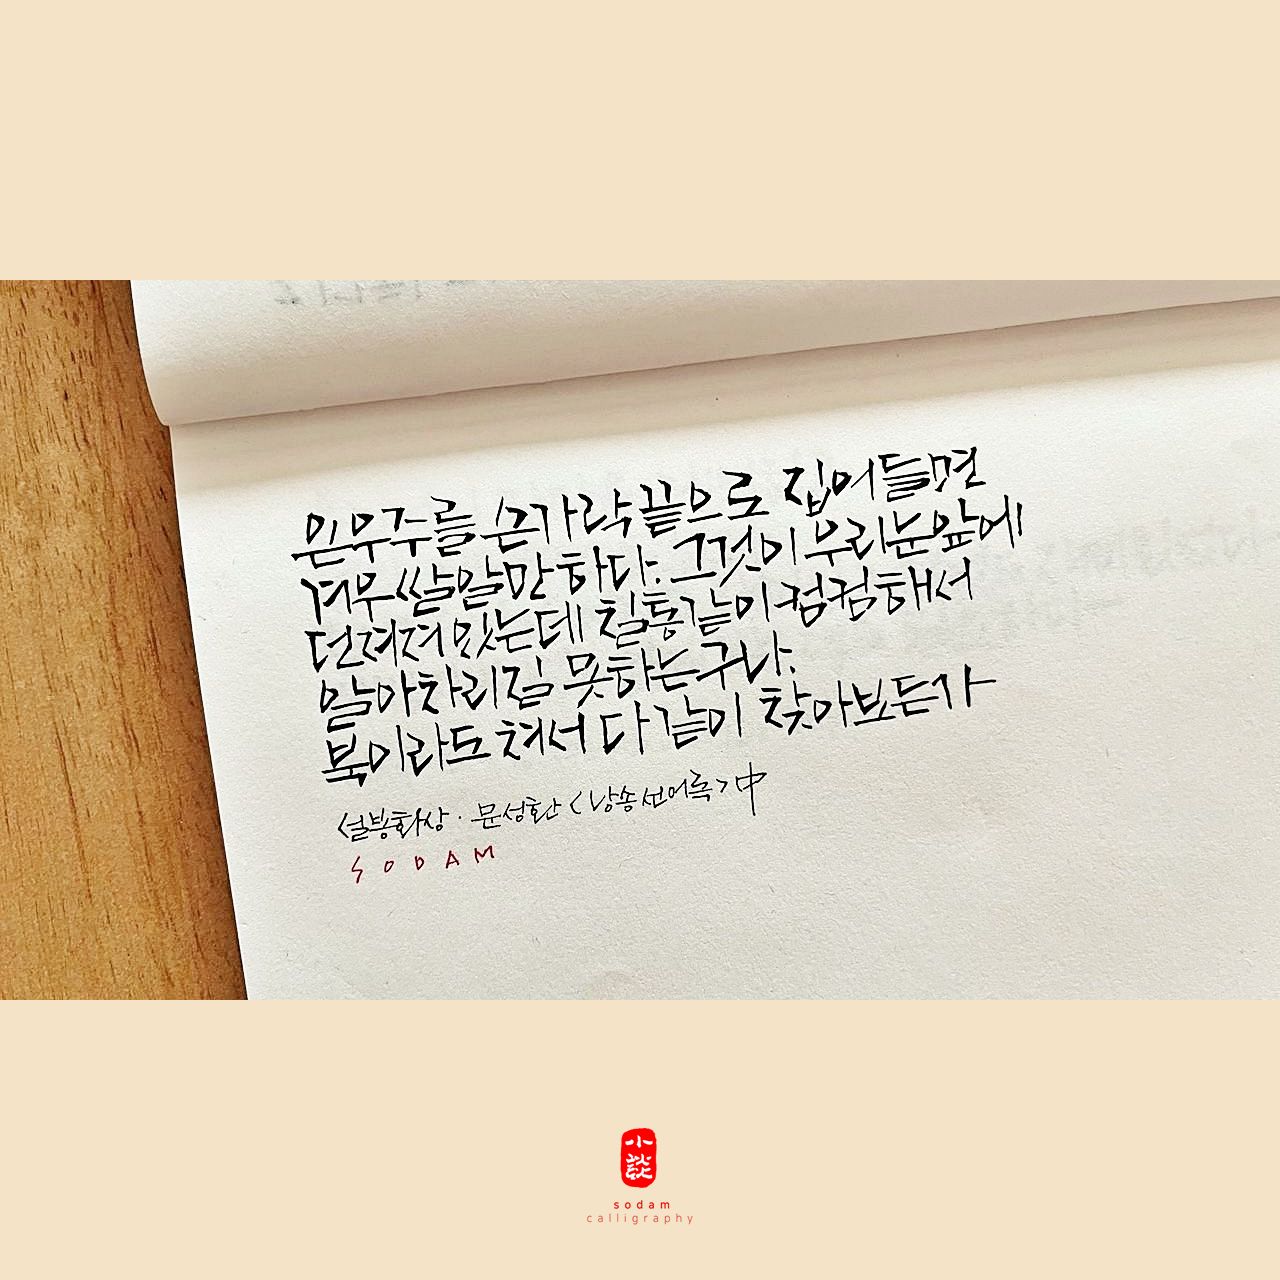 온우주를 손가락 끝으로 집어들면
겨우 쌀알만하다. 그것이 우리 눈앞에
던져져 있는데 칠통같이 컴컴해서
알아차리질 못하는구나.
북이라도 쳐서 다 같이 찾아보든가
설봉화상 · 문성환 <낭송선어록> 中
SODAM
小談
sodam
calligraphy